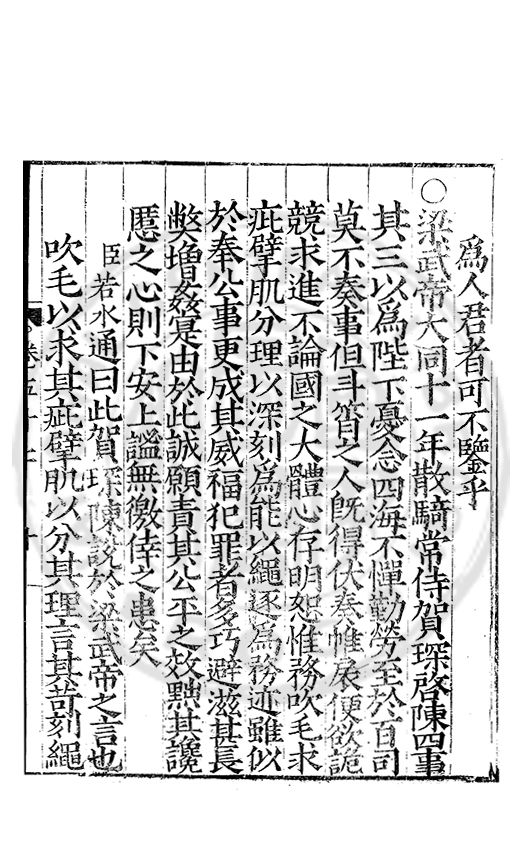 爲人君者可不鑒乎
○梁武帝大同十一年散騎常侍賀琛啓陳四事
其三以爲陛下憂念四海不憚勤勞至於百司
莫不奏事但斗筲之人既得伏奏帷扆便欲詭
競求進不論國之大體心存明恕惟務吹毛求
疵擘肌分理以深刻爲能以繩逐爲務迹雖似
於奉公事更成其威福犯罪者多巧避滋甚長
獘增姦寔由於此誠願責其公平之效黜其讒
慝之心則下安上謐無徼倖之患矣
臣若水通曰此賀琛陳說於梁武帝之言也
吹毛以求其疵擘肌以分其理言其苛刻繩
卷五十七